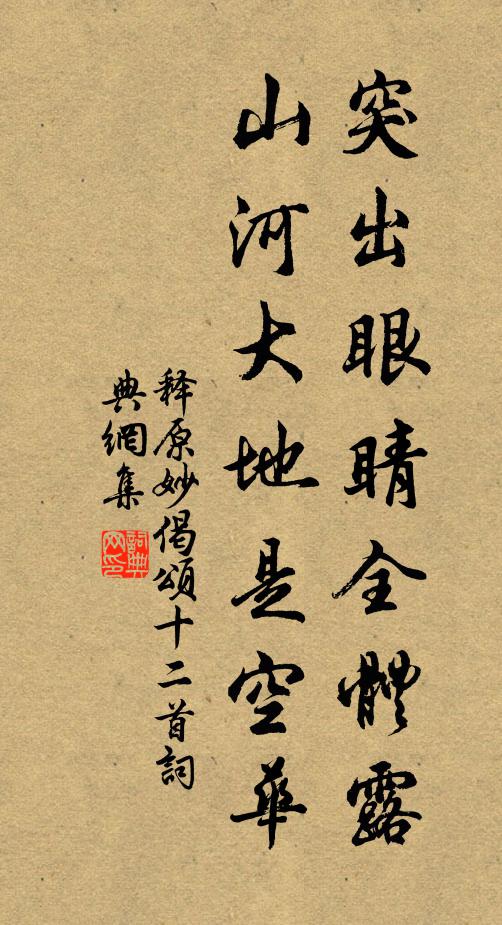 突出眼睛全體露
山河大地是空華
释原妙偈頌十二首詞
典網集
詞典
网印